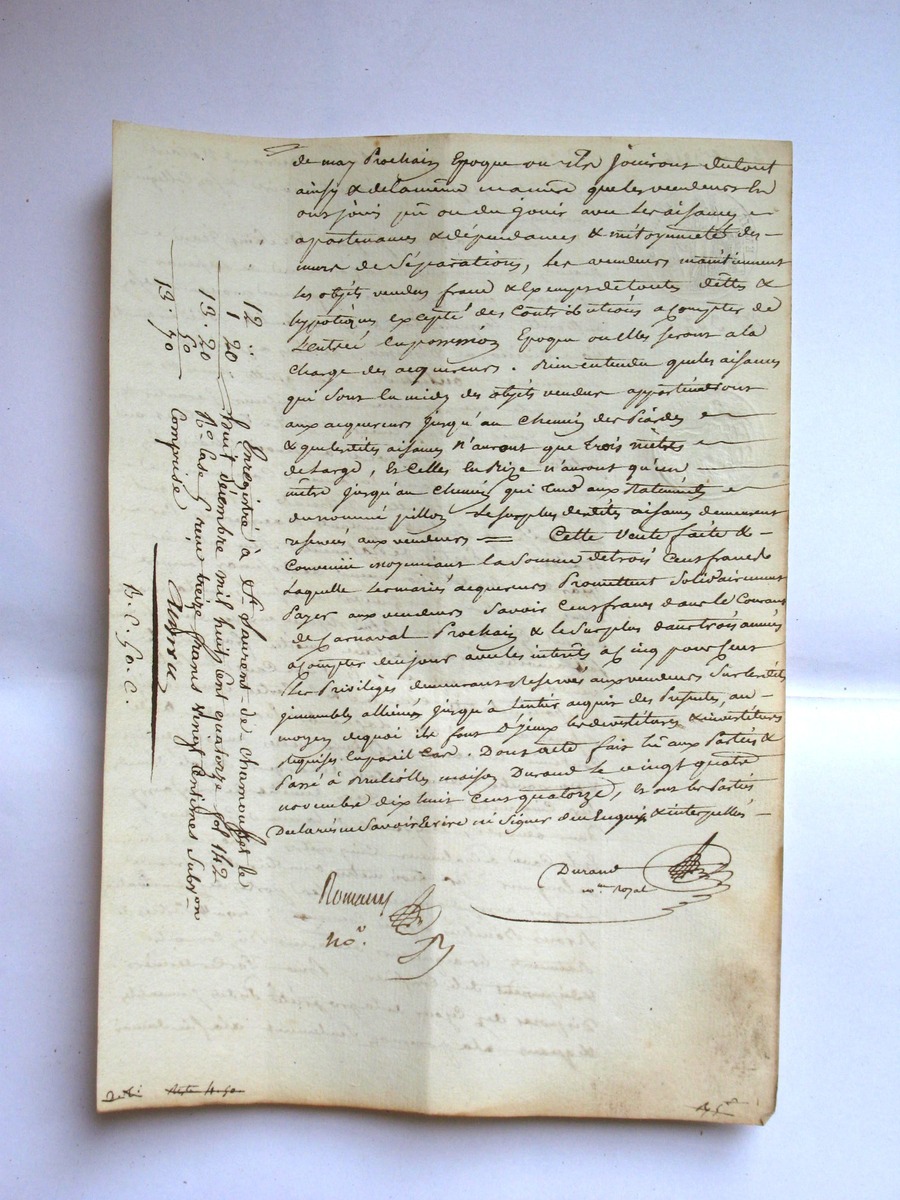 de may Prochain Epoque ou ils Jouiront du tout
ainsy & de la même manière que les vendeurs en
ont joüis pû ou du jouir avec les aisances
apartenances & dépendances & mitoyenneté des
murs de Séparations, les vendeurs maintiennent
les objets vendus franc & Exempts de toutes dettes &
hypotèques excepté des Contributions a Compter de
L'entrée en possession Epoque ou elles seront a la
Charge des acquereurs. Bien entendu que les aisances
qui sont la midy des objets vendus appartiendront
aux acquereurs Jusqu'au Chemin des
& que lesdites aisances n'auront que trois mètres
de Large, & Celles En Bize n'auront qu'un
mètre Jusqu'au Chemin qui tend aux
du nommé pillon Le surplus desdites aisances demeurent
reservées aux vendeurs = Cette Vente faite &
Convenue moyennant la Somme de trois Cent francs
Laquelle Les mariés acquereurs Promettent Solidairement
Payer aux vendeurs Savoir Cent francs dans le Courant
de Carnaval Prochain & le Surplus dans trois années
a Compter de ce jour avec les interets a Cinq pour Cent
Les Privilèges demeurant Reservés aux vendeurs Sur lesdits
immeubles alliénés Jusqu'a l'entier acquit des Presentes, au
moyen de quoi ils font les devestitures & investitures
requises En pareil Cas. Dont acte fait lû aux Parties &
Passé à Brullioles maison Durand le vingt quatre
novembre dix huit Cent quatorze, & ont les Parties
Declarés ne Savoir Ecrire ni Signer de ce Enquis & interpellés
Durand
no.re Royal
Romany
No.e
12 "
1 20
13. 20
50
13. 70
Enregistré à St. Laurent-de Chamousset le
huit décembre mil huit cent quatorze fol 142
R.o Case 5 reçu treize francs vingt Centimes Subv.on
Comprise
B. C. 50. C.